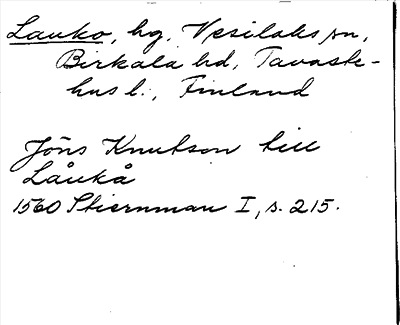 Lauko, hg, Vesilaks sn,
Birkala hd, Tavaste-
hus l., Finland
Jöns Knutson till
Låukå
1560 Stiernman I, s. 215.